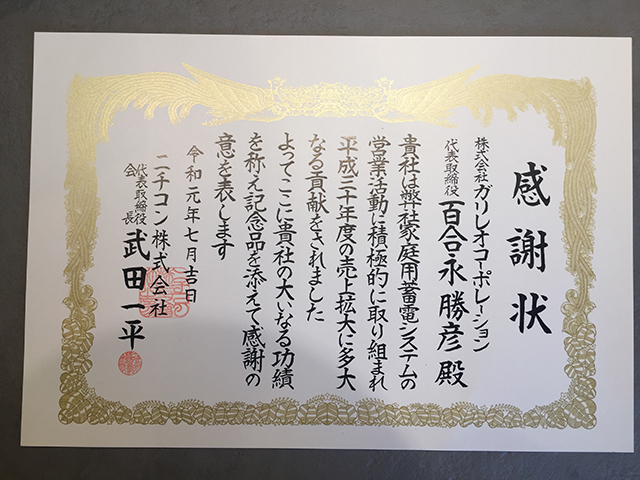 感謝状
株式会社 ガリレオコーポレーション
代表取締役 百合永勝彦 殿
貴社は弊社家庭用蓄電システムの
営業活動に積極的に取り組まれ
平成三十年度の売上拡大に多大
なる貢献をされました
よってここに貴社の大いなる功績
を称え記念品を添えて感謝の
意を表します
令和元年七月吉日
ニチコン株式会社
代表取締役会長 武田一平